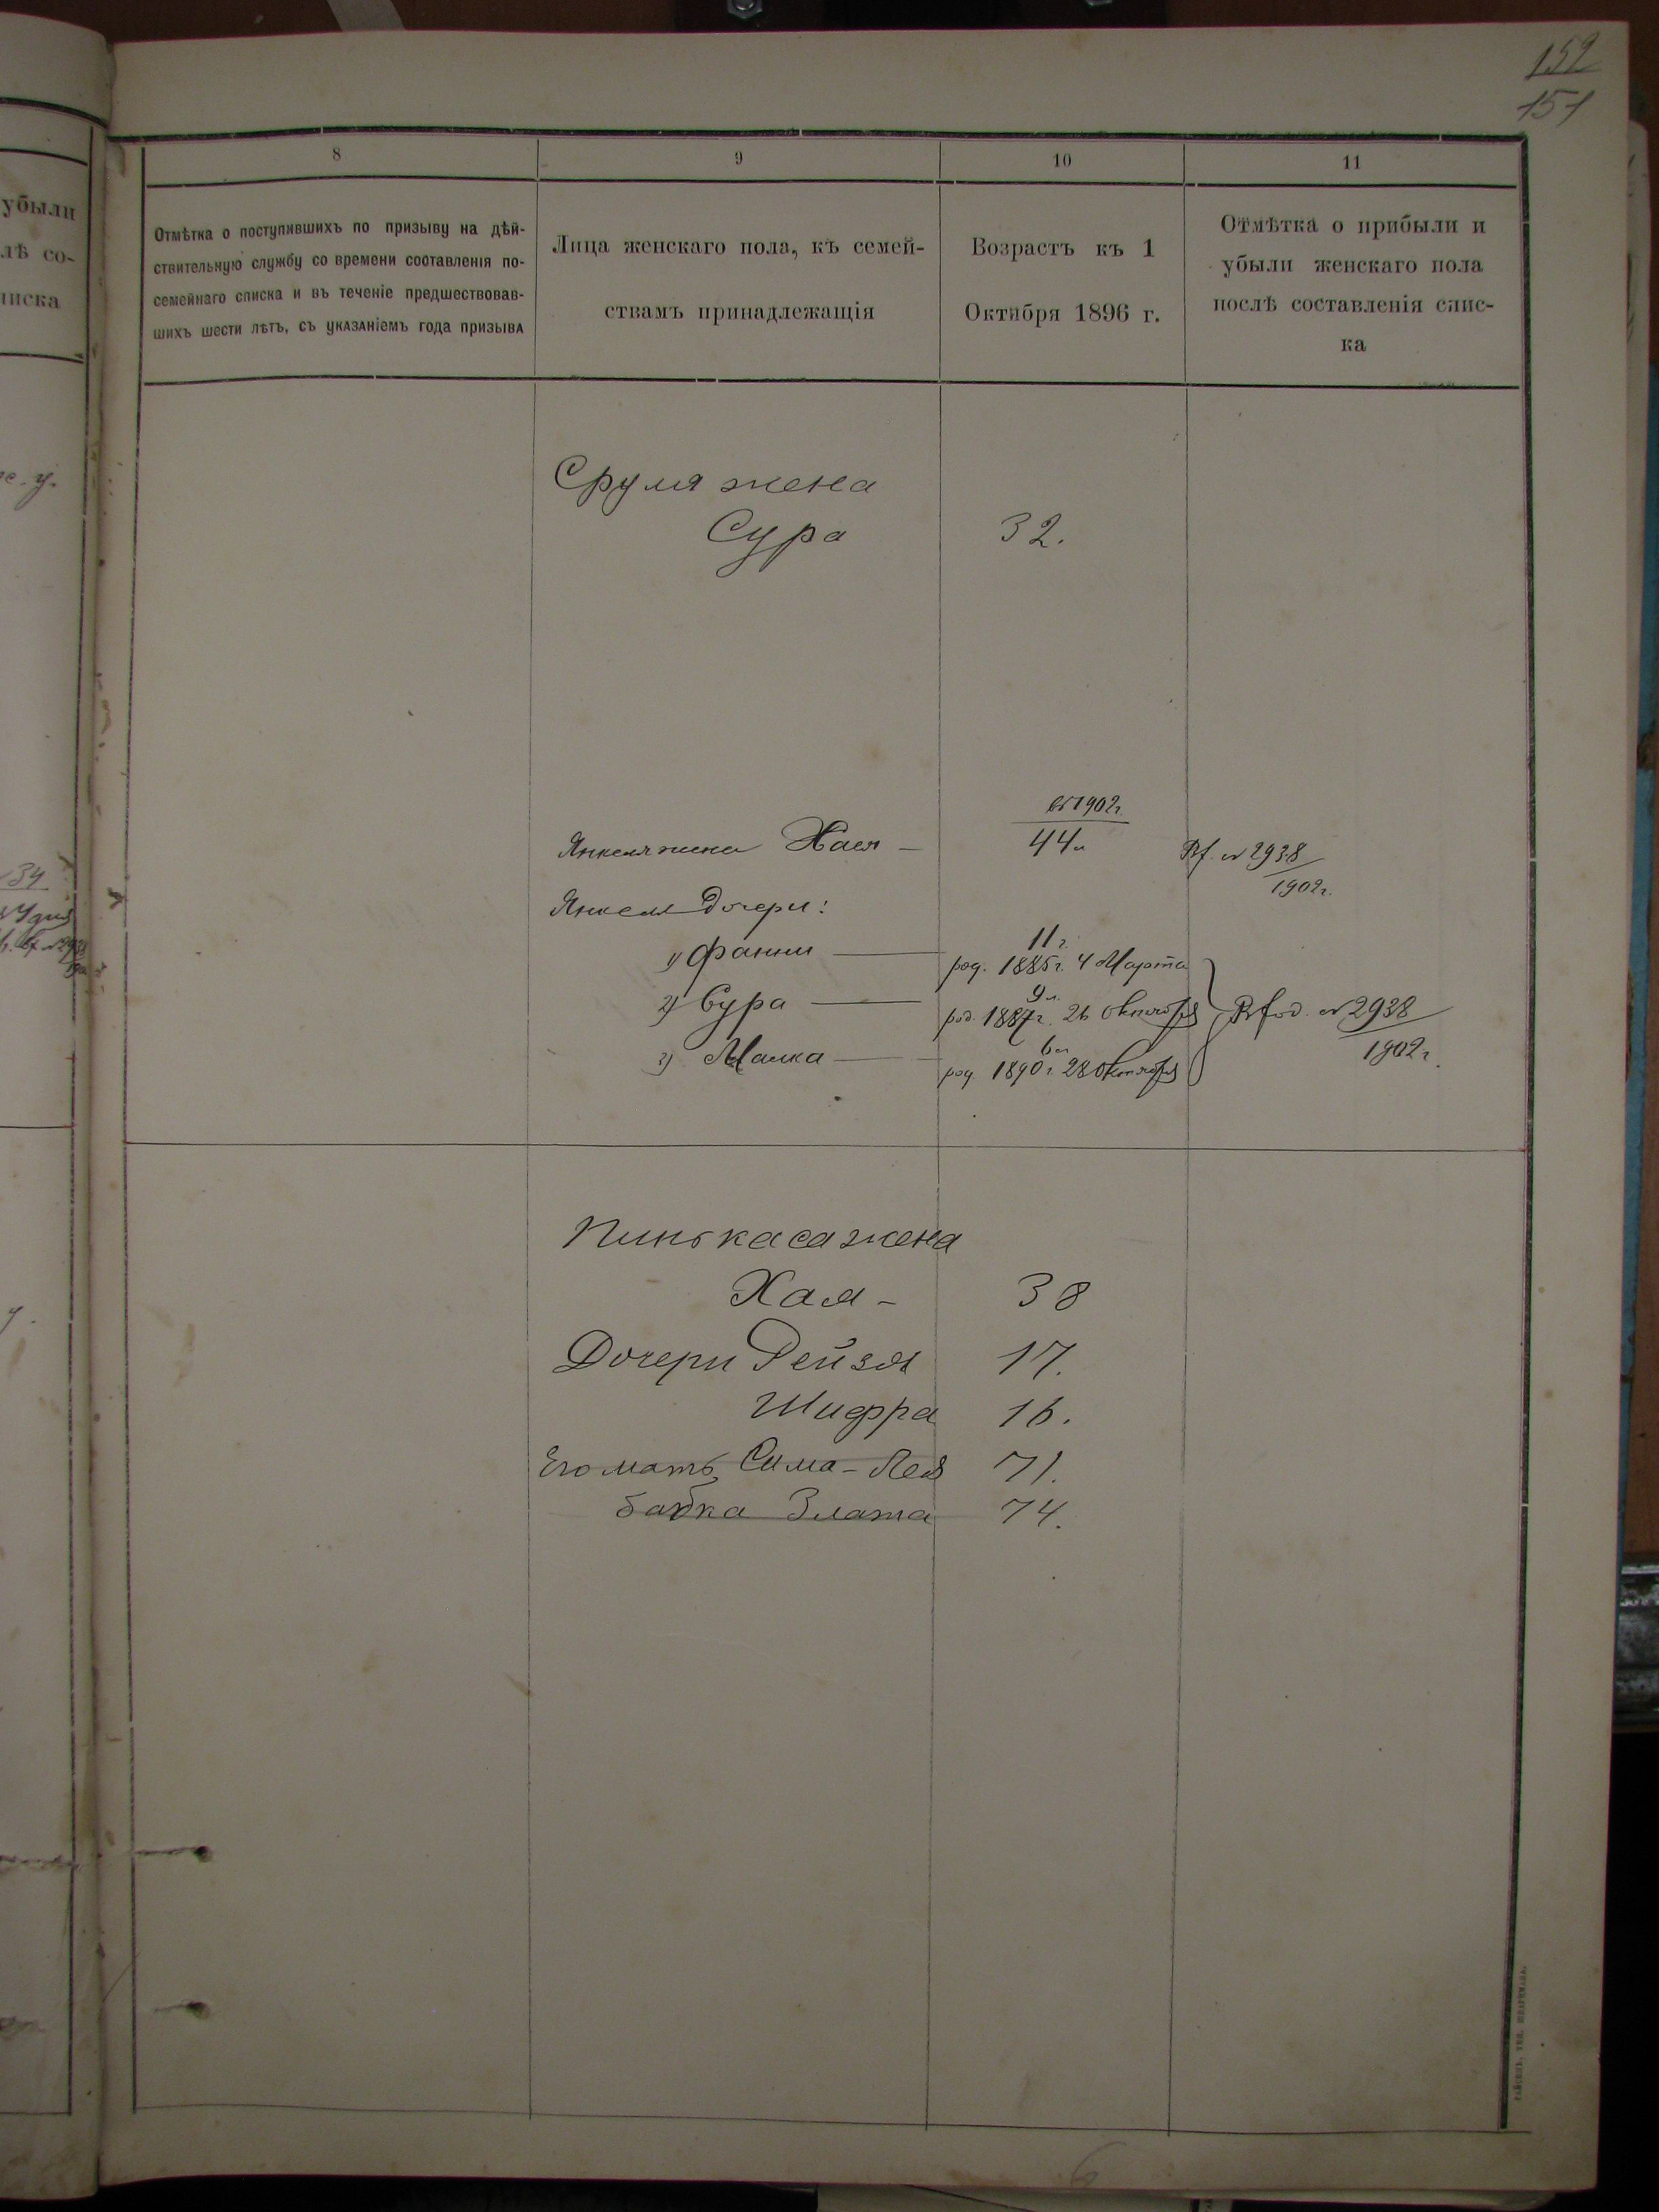 152
151
8
9
10
11
Отмѣтка о поступившихъ по призыву на дѣй-
ствительную службу со времени составленія по-
семейнаго списка и въ теченіе предшествовав-
шихъ шести лѣтъ, съ указаніемъ года призыва
Лица женскаго пола, къ семей-
ствамъ принадлежащія
Возрастъ къ 1
Октября 1896 г.
Отмѣтка о прибыли и
убыли женскаго пола
послѣ составленія спис-
ка
убыли
лѣ со-
писка
Сруля жена
Сура 32.
въ 1902г.
Янкеля жена Хая — 44л № 2938
1902г.
Янкеля дочери:
11г.
1) Фанни — род. 1885г. 4 Марта
9л.
2) Сура — род. 1887г. 26 Октября № 2938
6л
1902г.
3) Малка — род. 1890г. 28 Октября
Пинькаса жена
Хая - 38
Дочери Рейзя 17.
Шифра 16.
Его мать, Сима-Лея 71.
бабка Злата 74.